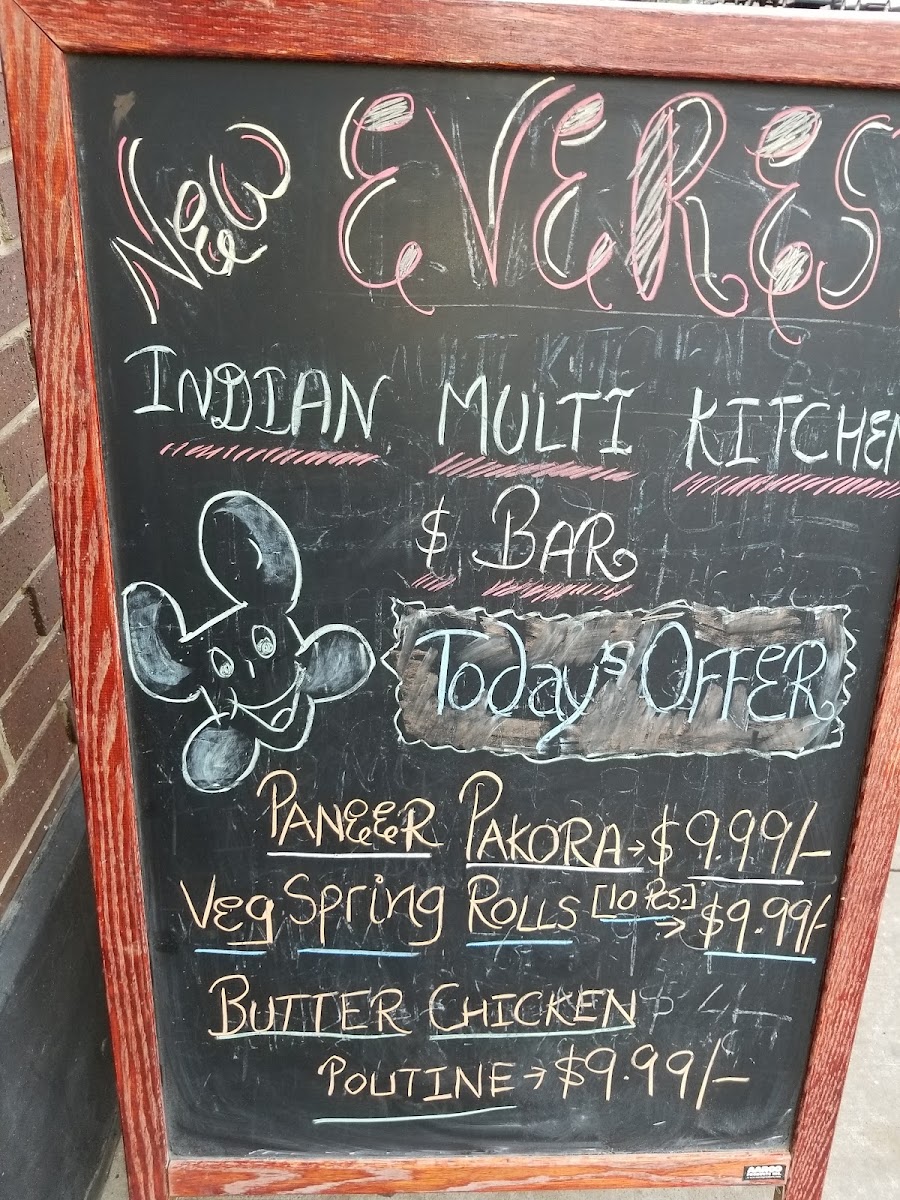 NEW EVERES
INDIAN MULTI KITCHEN
$ BAR
Today's OFFER
PANEER PAKORA → $9.99/-
Veg Spring ROLLS [10 Pcs.]
→ $9.99/-
BUTTER CHICKEN
POUTINE → $9.99/-